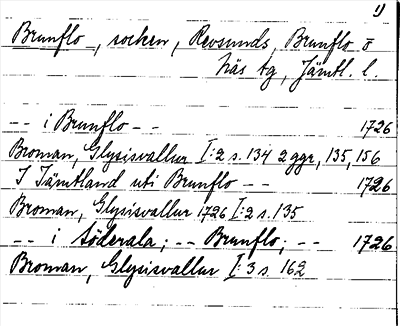 1)
Brunflo, socken, Revsunds, Brunflo o
Näs tg, Jämtl. l.
-- i Brunflo -- 1726
Broman, Glysisvallur I:2 s. 134 2 ggr, 135, 156
I Jämtland uti Brunflo -- 1726
Broman, Glysisvallur 1726 I:2 s. 135
-- i Söderala; -- Brunflo; -- 1726
Broman, Glysisvallur I:3 s. 162